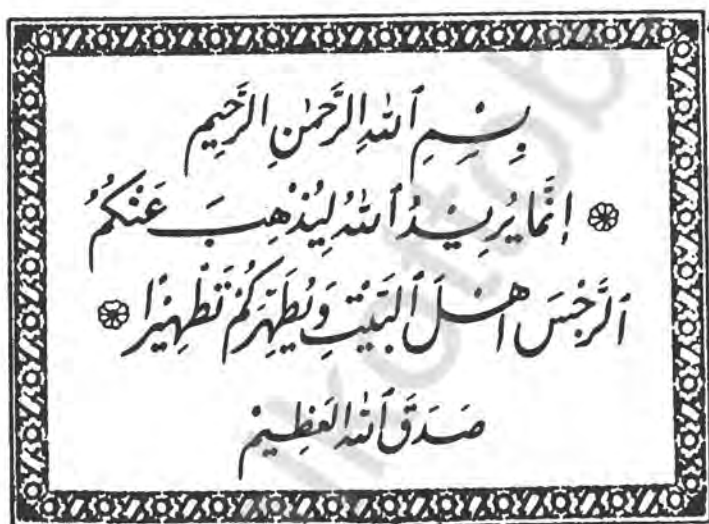 بِسْمِ ٱللهِ الرَّحْمٰنِ الرَّحِيمِ
إنَّمَا يُرِيْدُ ٱللهُ لِيُذْهِبَ عَنْكُمُ
ٱلرِّجْسَ اهْلَ ٱلْبَيْتِ وَيُطَهِّرَكُمْ تَطْهِيْرًا
صَدَقَ ٱللهُ العَظِيمْ